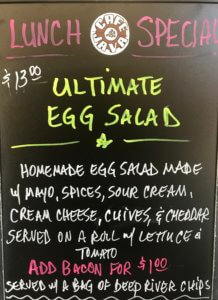 LUNCH CAFE JAVA SPECIAL
$13.00
ULTIMATE
EGG SALAD
HOMEMADE EGG SALAD MADE
w/ MAYO, SPICES, SOUR CREAM,
CREAM CHEESE, CHIVES, & CHEDDAR
SERVED ON A ROLL w/ LETTUCE &
TOMATO
ADD BACON FOR $1.00
SERVED w/ A BAG OF DEEP RIVER CHIPS